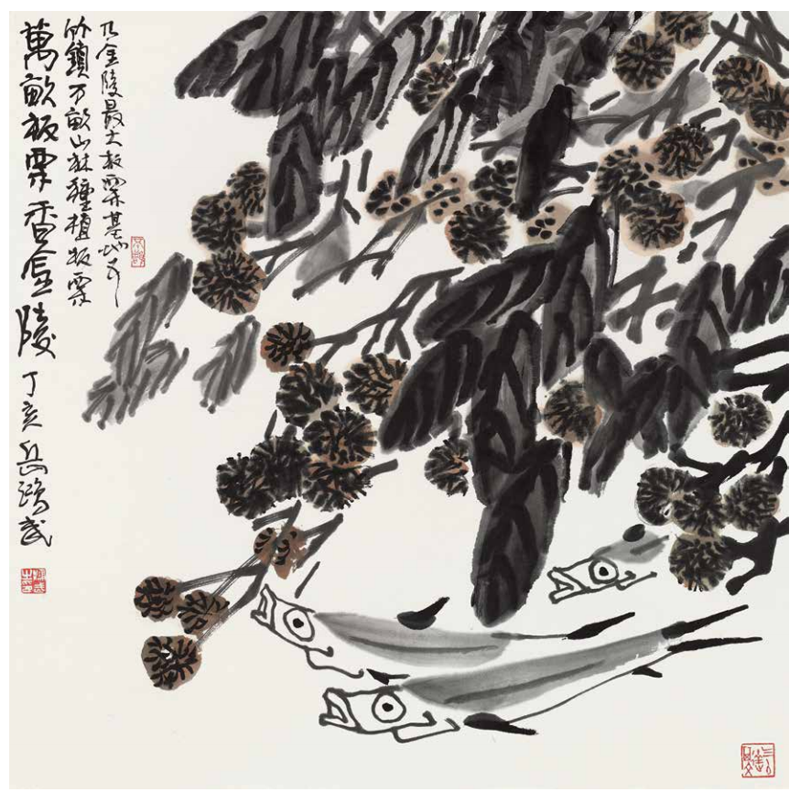 萬畝板栗香金陵 丁亥 岳鴻武
竹鎮万畝山林種植板栗
乃金陵最大板栗基地